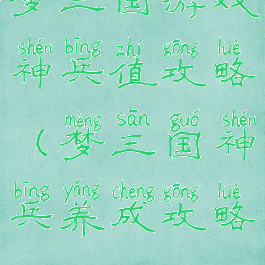 梦三国游戏
shén bīng zhí gōng luè
神兵值攻略
mèng sān guó shén
（梦三国神
bīng yǎng chéng gōng luè
兵养成攻略